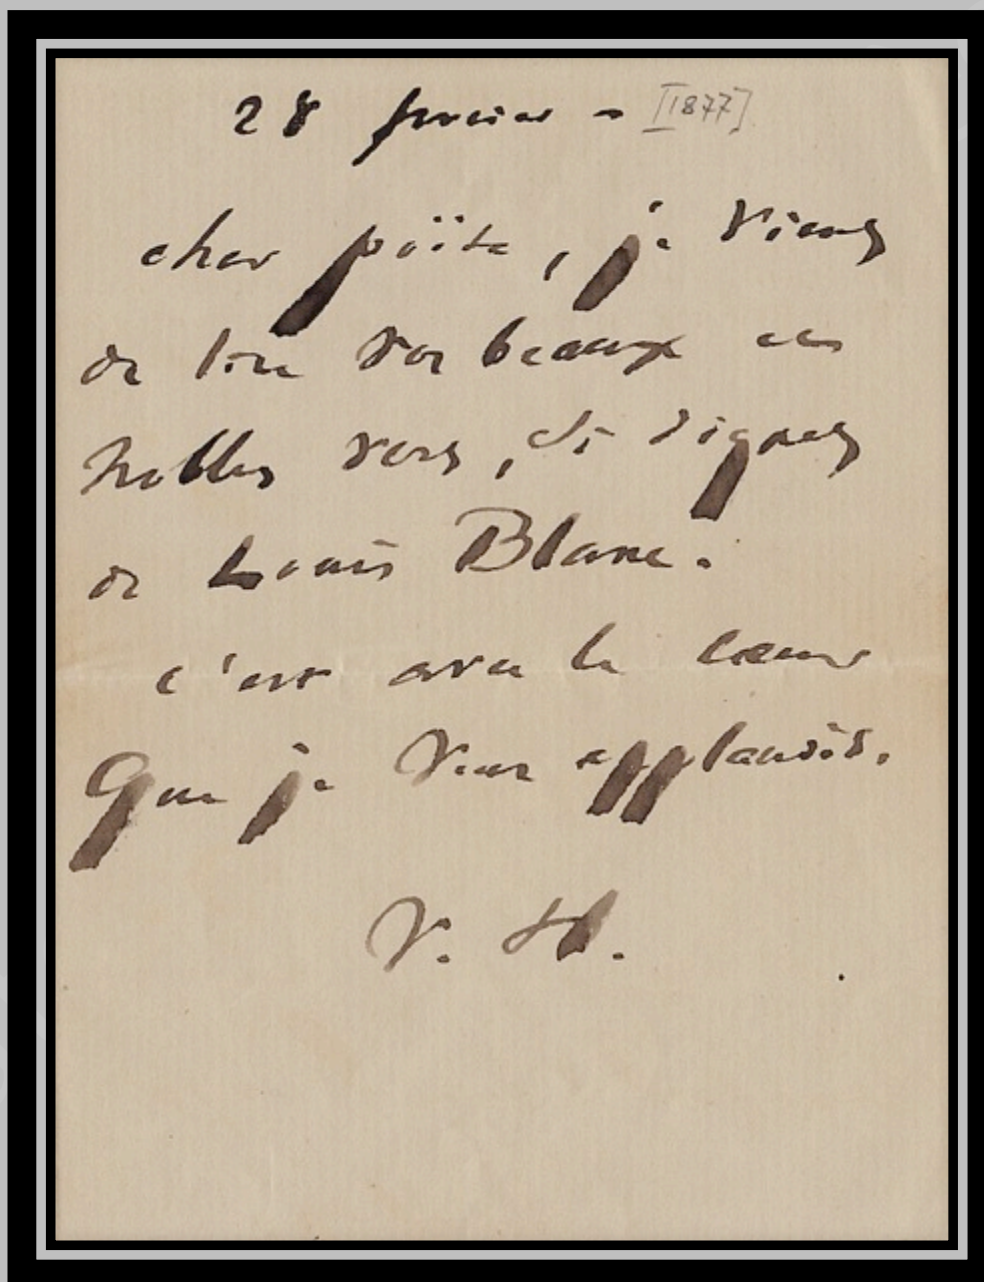 28 février - [1877]
cher poëte, je viens
de lire vos beaux et
nobles vers, si dignes
de Louis Blanc.
c'est avec le cœur
Que je vous applaudis.
V. H.